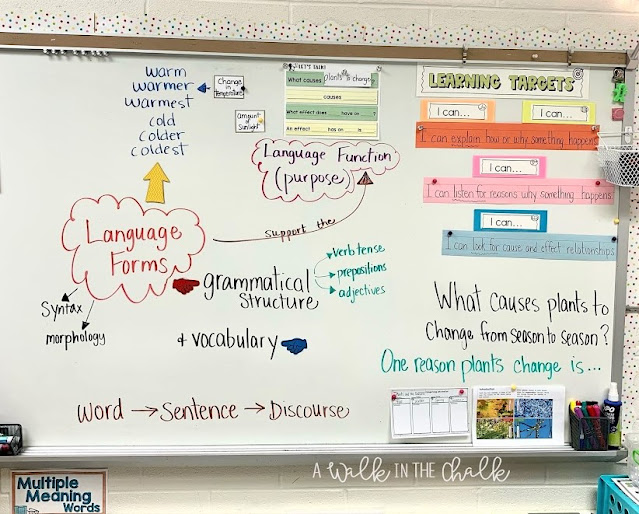 warm
warmer
warmest
cold
colder
coldest
Change
in
Temperature
Amount
of
Sunlight
LET'S TALK!
What causes plants to change
causes
What effect does have on ?
An effect has on is
LEARNING TARGETS
I can...
I can...
I can explain how or why something happens
I can...
I can listen for reasons why something happens
I can...
I can look for cause and effect relationships
Language Function
(purpose)
support the
Language
Forms
Syntax
morphology
grammatical
Structure
verb tense
prepositions
adjectives
+ vocabulary
What causes plants to
Change from season to season?
One reason plants change is...
Word → Sentence → Discourse
A Walk IN THE Chalk
Multiple
Meaning
Words
EXPO